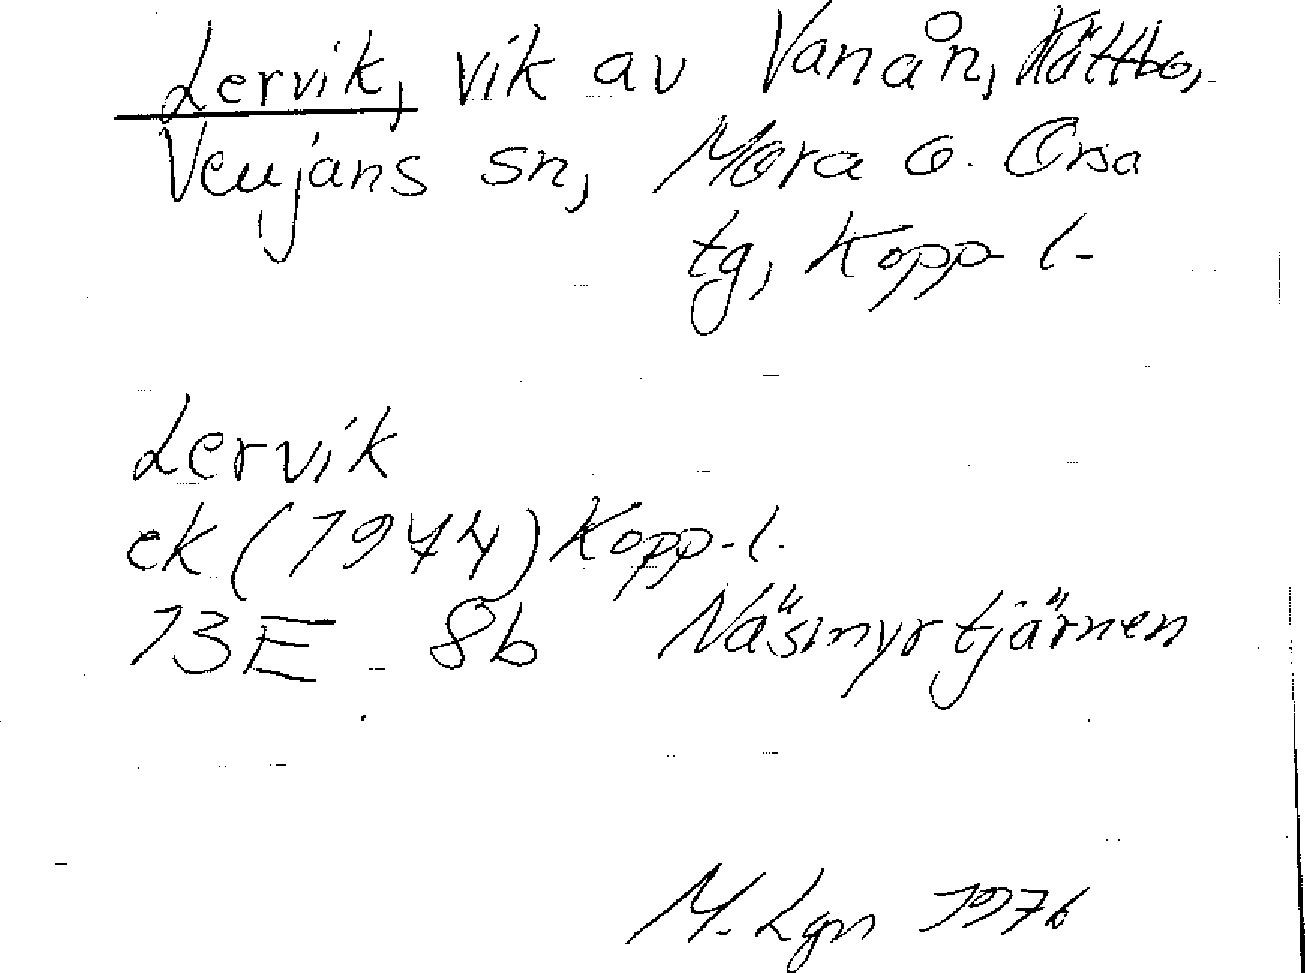 Lervik, vik av Vanån, Kättbo,
Venjans sn, Mora o. Orsa
tg, Kopp. l.
Lervik
ek (1974) Kopp. l.
13E 8b Näsmyrtjärnen
M. Lgn 1976